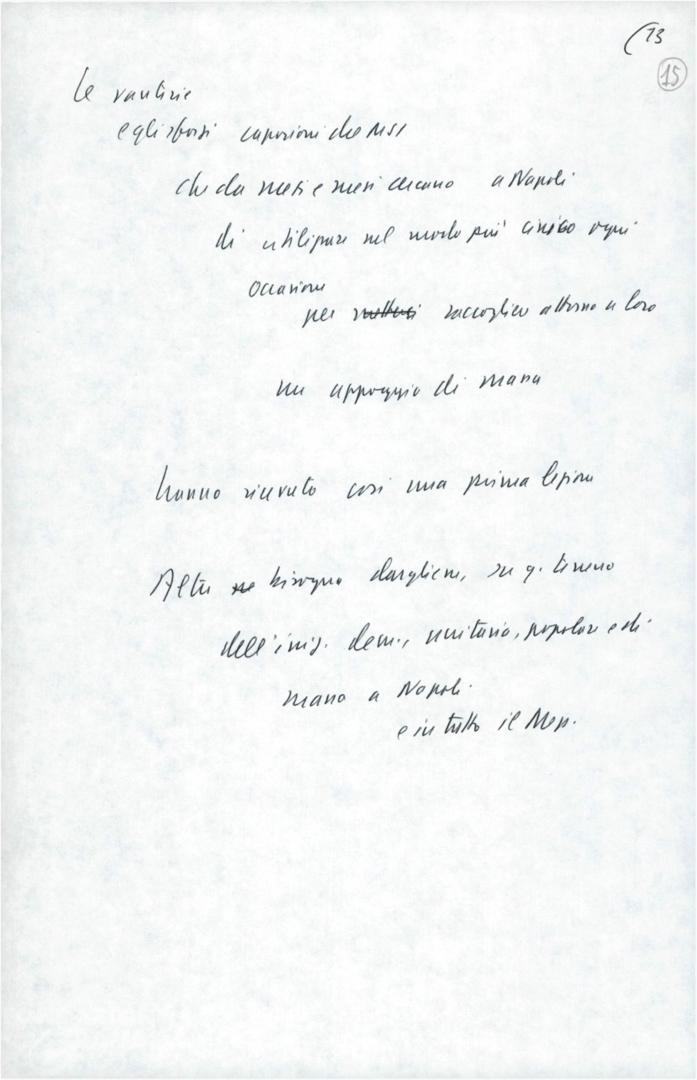 (13
15
Le vanterie
e gli sforzi del MSI
che da mesi e mesi cercano a Napoli
di utilizzare nel modo più cinico ogni
occasione
per raccogliere attorno a loro
un appoggio di massa
hanno ricevuto così una prima lezione
Altre bisogna dargliene, su q. terreno
dell'iniz. dem., unitaria, popolare e di
massa a Napoli.
e in tutto il Mezz.